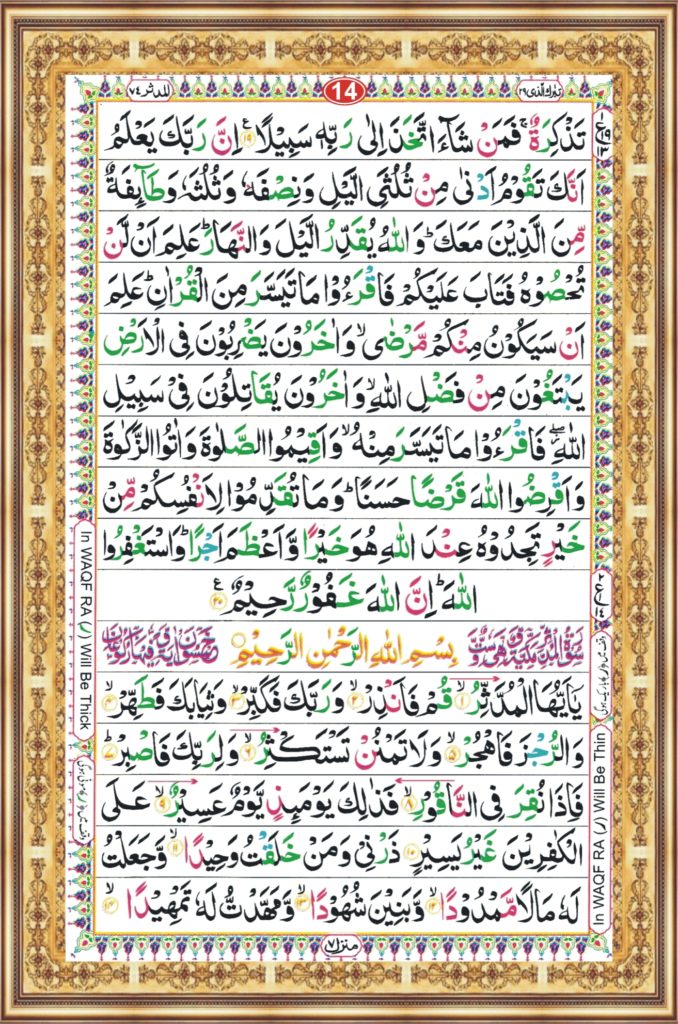 تبٰرك الذی ٢٩
14
المدثر ٧٤
تَذْكِرَةٌ ۚ فَمَنْ شَآءَ اتَّخَذَ اِلٰى رَبِّهٖ سَبِيْلًا ۠ ﴿١٩﴾ اِنَّ رَبَّكَ يَعْلَمُ
اَنَّكَ تَقُوْمُ اَدْنٰى مِنْ ثُلُثَىِ الَّيْلِ وَنِصْفَهٗ وَثُلُثَهٗ وَطَآئِفَةٌ
مِّنَ الَّذِيْنَ مَعَكَ ؕ وَاللّٰهُ يُقَدِّرُ الَّيْلَ وَالنَّهَارَ ؕ عَلِمَ اَنْ لَّنْ
تُحْصُوْهُ فَتَابَ عَلَيْكُمْ فَاقْرَءُوْا مَا تَيَسَّرَ مِنَ الْقُرْاٰنِ ؕ عَلِمَ
اَنْ سَيَكُوْنُ مِنْكُمْ مَّرْضٰى ۙ وَاٰخَرُوْنَ يَضْرِبُوْنَ فِى الْاَرْضِ
يَبْتَغُوْنَ مِنْ فَضْلِ اللّٰهِ ۙ وَاٰخَرُوْنَ يُقَاتِلُوْنَ فِىْ سَبِيْلِ
اللّٰهِ ۖ فَاقْرَءُوْا مَا تَيَسَّرَ مِنْهُ ۙ وَاَقِيْمُوا الصَّلٰوةَ وَاٰتُوا الزَّكٰوةَ
وَاَقْرِضُوا اللّٰهَ قَرْضًا حَسَنًا ؕ وَمَا تُقَدِّمُوْا لِاَنْفُسِكُمْ مِّنْ
خَيْرٍ تَجِدُوْهُ عِنْدَ اللّٰهِ هُوَ خَيْرًا وَّاَعْظَمَ اَجْرًا ؕ وَاسْتَغْفِرُوا
اللّٰهَ ؕ اِنَّ اللّٰهَ غَفُوْرٌ رَّحِيْمٌ ﴿٢٠﴾
بِسْمِ اللّٰهِ الرَّحْمٰنِ الرَّحِيْمِ
يٰۤاَيُّهَا الْمُدَّثِّرُ ﴿١﴾ قُمْ فَاَنْذِرْ ﴿٢﴾ وَرَبَّكَ فَكَبِّرْ ﴿٣﴾ وَثِيَابَكَ فَطَهِّرْ ﴿٤﴾
وَالرُّجْزَ فَاهْجُرْ ﴿٥﴾ وَلَا تَمْنُنْ تَسْتَكْثِرُ ﴿٦﴾ وَلِرَبِّكَ فَاصْبِرْ ﴿٧﴾
فَاِذَا نُقِرَ فِى النَّاقُوْرِ ﴿٨﴾ فَذٰلِكَ يَوْمَئِذٍ يَّوْمٌ عَسِيْرٌ ﴿٩﴾ عَلَى
الْكٰفِرِيْنَ غَيْرُ يَسِيْرٍ ﴿١٠﴾ ذَرْنِىْ وَمَنْ خَلَقْتُ وَحِيْدًا ﴿١١﴾ وَّجَعَلْتُ
لَهٗ مَالًا مَّمْدُوْدًا ﴿١٢﴾ وَّبَنِيْنَ شُهُوْدًا ﴿١٣﴾ وَّمَهَّدْتُّ لَهٗ تَمْهِيْدًا ﴿١٤﴾
منزل ٧
In WAQF RA (ر) Will Be Thick
In WAQF RA (ر) Will Be Thin